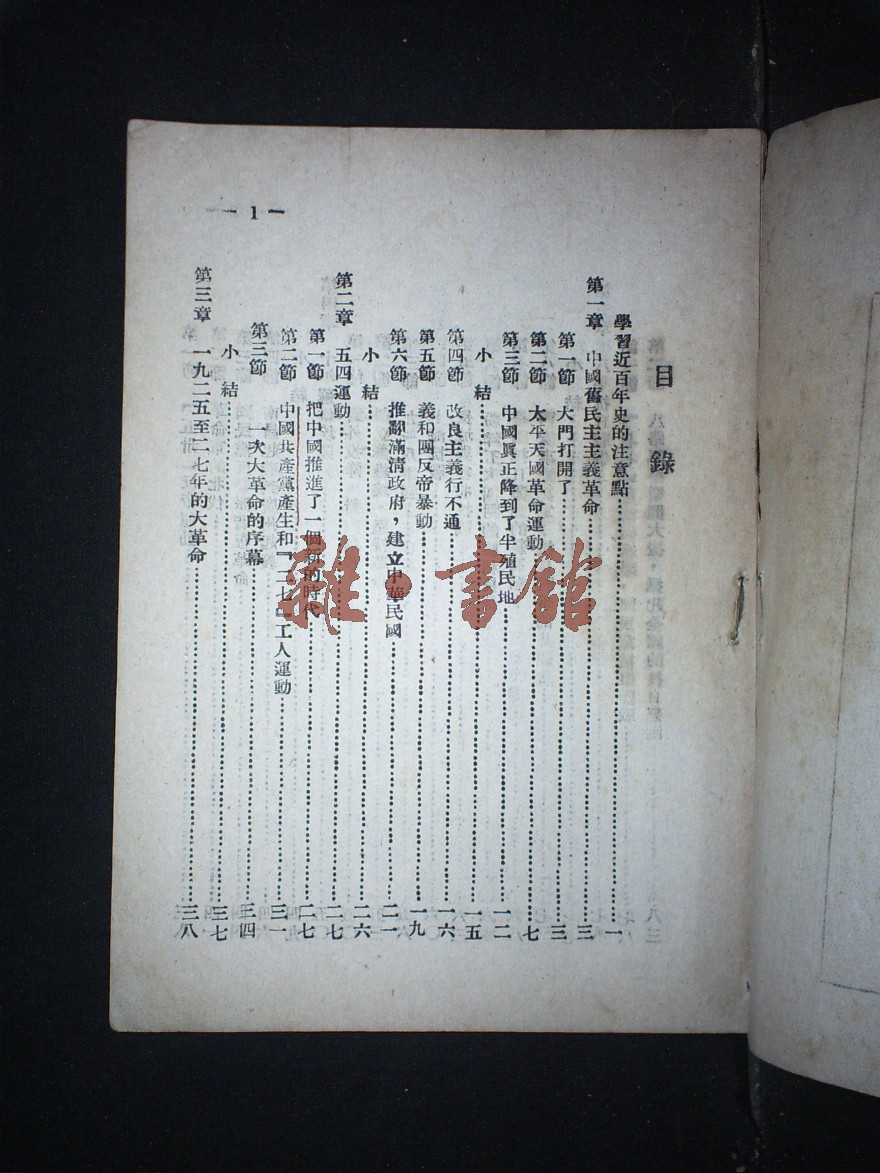 目錄
學習近百年史的注意點………一
第一章 中國舊民主主義革命………三
第一節 大門打開了………三
第二節 太平天國革命運動………七
第三節 中國眞正降到了半殖民地………一二
小結………一五
第四節 改良主義行不通………一六
第五節 義和團反帝暴動………一九
第六節 推翻滿清政府，建立中華民國………二一
小結………二六
第二章 五四運動………二七
第一節 把中國推進了一個新的時代………二七
第二節 中國共產黨產生和『二七』工人運動………三一
第三節 一次大革命的序幕………三四
小結………三七
第三章 一九二五至二七年的大革命………三八
— 1 —
雜·書館